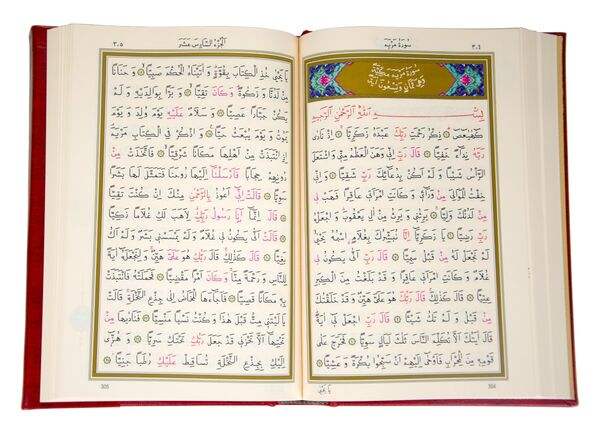 ٣٠٤ سُورَةُ مَرْيَمَ
سُورَةُ مَرْيَمَ مَكِّيَّةٌ
وَهِيَ ثَمَانٍ وَتِسْعُونَ اٰيَةً
بِسْمِ اللّٰهِ الرَّحْمٰنِ الرَّحِيمِ
كٓهٰيٰعٓصٓ ۝ ذِكْرُ رَحْمَتِ رَبِّكَ عَبْدَهُ زَكَرِيَّا ۝ اِذْ نَادٰى
رَبَّهُ نِدَآءً خَفِيًّا ۝ قَالَ رَبِّ اِنِّي وَهَنَ الْعَظْمُ مِنِّي وَاشْتَعَلَ
الرَّأْسُ شَيْبًا وَلَمْ اَكُنْ بِدُعَآئِكَ رَبِّ شَقِيًّا ۝ وَاِنِّي
خِفْتُ الْمَوَالِيَ مِنْ وَرَآئِي وَكَانَتِ امْرَاَتِي عَاقِرًا فَهَبْ لِي
مِنْ لَدُنْكَ وَلِيًّا ۝ يَرِثُنِي وَيَرِثُ مِنْ اٰلِ يَعْقُوبَ وَاجْعَلْهُ
رَبِّ رَضِيًّا ۝ يَا زَكَرِيَّا اِنَّا نُبَشِّرُكَ بِغُلَامٍ اسْمُهُ يَحْيٰى
لَمْ نَجْعَلْ لَهُ مِنْ قَبْلُ سَمِيًّا ۝ قَالَ رَبِّ اَنّٰى يَكُونُ لِي
غُلَامٌ وَكَانَتِ امْرَاَتِي عَاقِرًا وَقَدْ بَلَغْتُ مِنَ الْكِبَرِ
عِتِيًّا ۝ قَالَ كَذٰلِكَ قَالَ رَبُّكَ هُوَ عَلَيَّ هَيِّنٌ وَقَدْ خَلَقْتُكَ
مِنْ قَبْلُ وَلَمْ تَكُ شَيْئًا ۝ قَالَ رَبِّ اجْعَلْ لِي اٰيَةً
قَالَ اٰيَتُكَ اَلَّا تُكَلِّمَ النَّاسَ ثَلٰثَ لَيَالٍ سَوِيًّا ۝ فَخَرَجَ عَلٰى
قَوْمِهِ مِنَ الْمِحْرَابِ فَاَوْحٰى اِلَيْهِمْ اَنْ سَبِّحُوا بُكْرَةً وَعَشِيًّا ۝
يَا يَحْيٰى
304
اَلْجُزْءُ السَّادِسُ عَشَرَ ٣٠٥
يَا يَحْيٰى خُذِ الْكِتَابَ بِقُوَّةٍ وَاٰتَيْنَاهُ الْحُكْمَ صَبِيًّا ۝ وَحَنَانًا
مِنْ لَدُنَّا وَزَكٰوةً وَكَانَ تَقِيًّا ۝ وَبَرًّا بِوَالِدَيْهِ وَلَمْ
يَكُنْ جَبَّارًا عَصِيًّا ۝ وَسَلَامٌ عَلَيْهِ يَوْمَ وُلِدَ وَيَوْمَ
يَمُوتُ وَيَوْمَ يُبْعَثُ حَيًّا ۝ وَاذْكُرْ فِي الْكِتَابِ مَرْيَمَ
اِذِ انْتَبَذَتْ مِنْ اَهْلِهَا مَكَانًا شَرْقِيًّا ۝ فَاتَّخَذَتْ مِنْ
دُونِهِمْ حِجَابًا فَاَرْسَلْنَا اِلَيْهَا رُوحَنَا فَتَمَثَّلَ لَهَا بَشَرًا
سَوِيًّا ۝ قَالَتْ اِنِّي اَعُوذُ بِالرَّحْمٰنِ مِنْكَ اِنْ كُنْتَ تَقِيًّا
۝ قَالَ اِنَّمَا اَنَا رَسُولُ رَبِّكِ لِاَهَبَ لَكِ غُلَامًا زَكِيًّا
۝ قَالَتْ اَنّٰى يَكُونُ لِي غُلَامٌ وَلَمْ يَمْسَسْنِي بَشَرٌ وَلَمْ اَكُ
بَغِيًّا ۝ قَالَ كَذٰلِكِ قَالَ رَبُّكِ هُوَ عَلَيَّ هَيِّنٌ وَلِنَجْعَلَهُ اٰيَةً
لِلنَّاسِ وَرَحْمَةً مِنَّا وَكَانَ اَمْرًا مَقْضِيًّا ۝ فَحَمَلَتْهُ فَانْتَبَذَتْ
بِهِ مَكَانًا قَصِيًّا ۝ فَاَجَآءَهَا الْمَخَاضُ اِلٰى جِذْعِ النَّخْلَةِ قَالَتْ
يَا لَيْتَنِي مِتُّ قَبْلَ هٰذَا وَكُنْتُ نَسْيًا مَنْسِيًّا ۝ فَنَادٰيهَا مِنْ
تَحْتِهَا اَلَّا تَحْزَنِي قَدْ جَعَلَ رَبُّكِ تَحْتَكِ سَرِيًّا ۝ وَهُزِّي
اِلَيْكِ بِجِذْعِ النَّخْلَةِ تُسَاقِطْ عَلَيْكِ رُطَبًا جَنِيًّا ۝
305